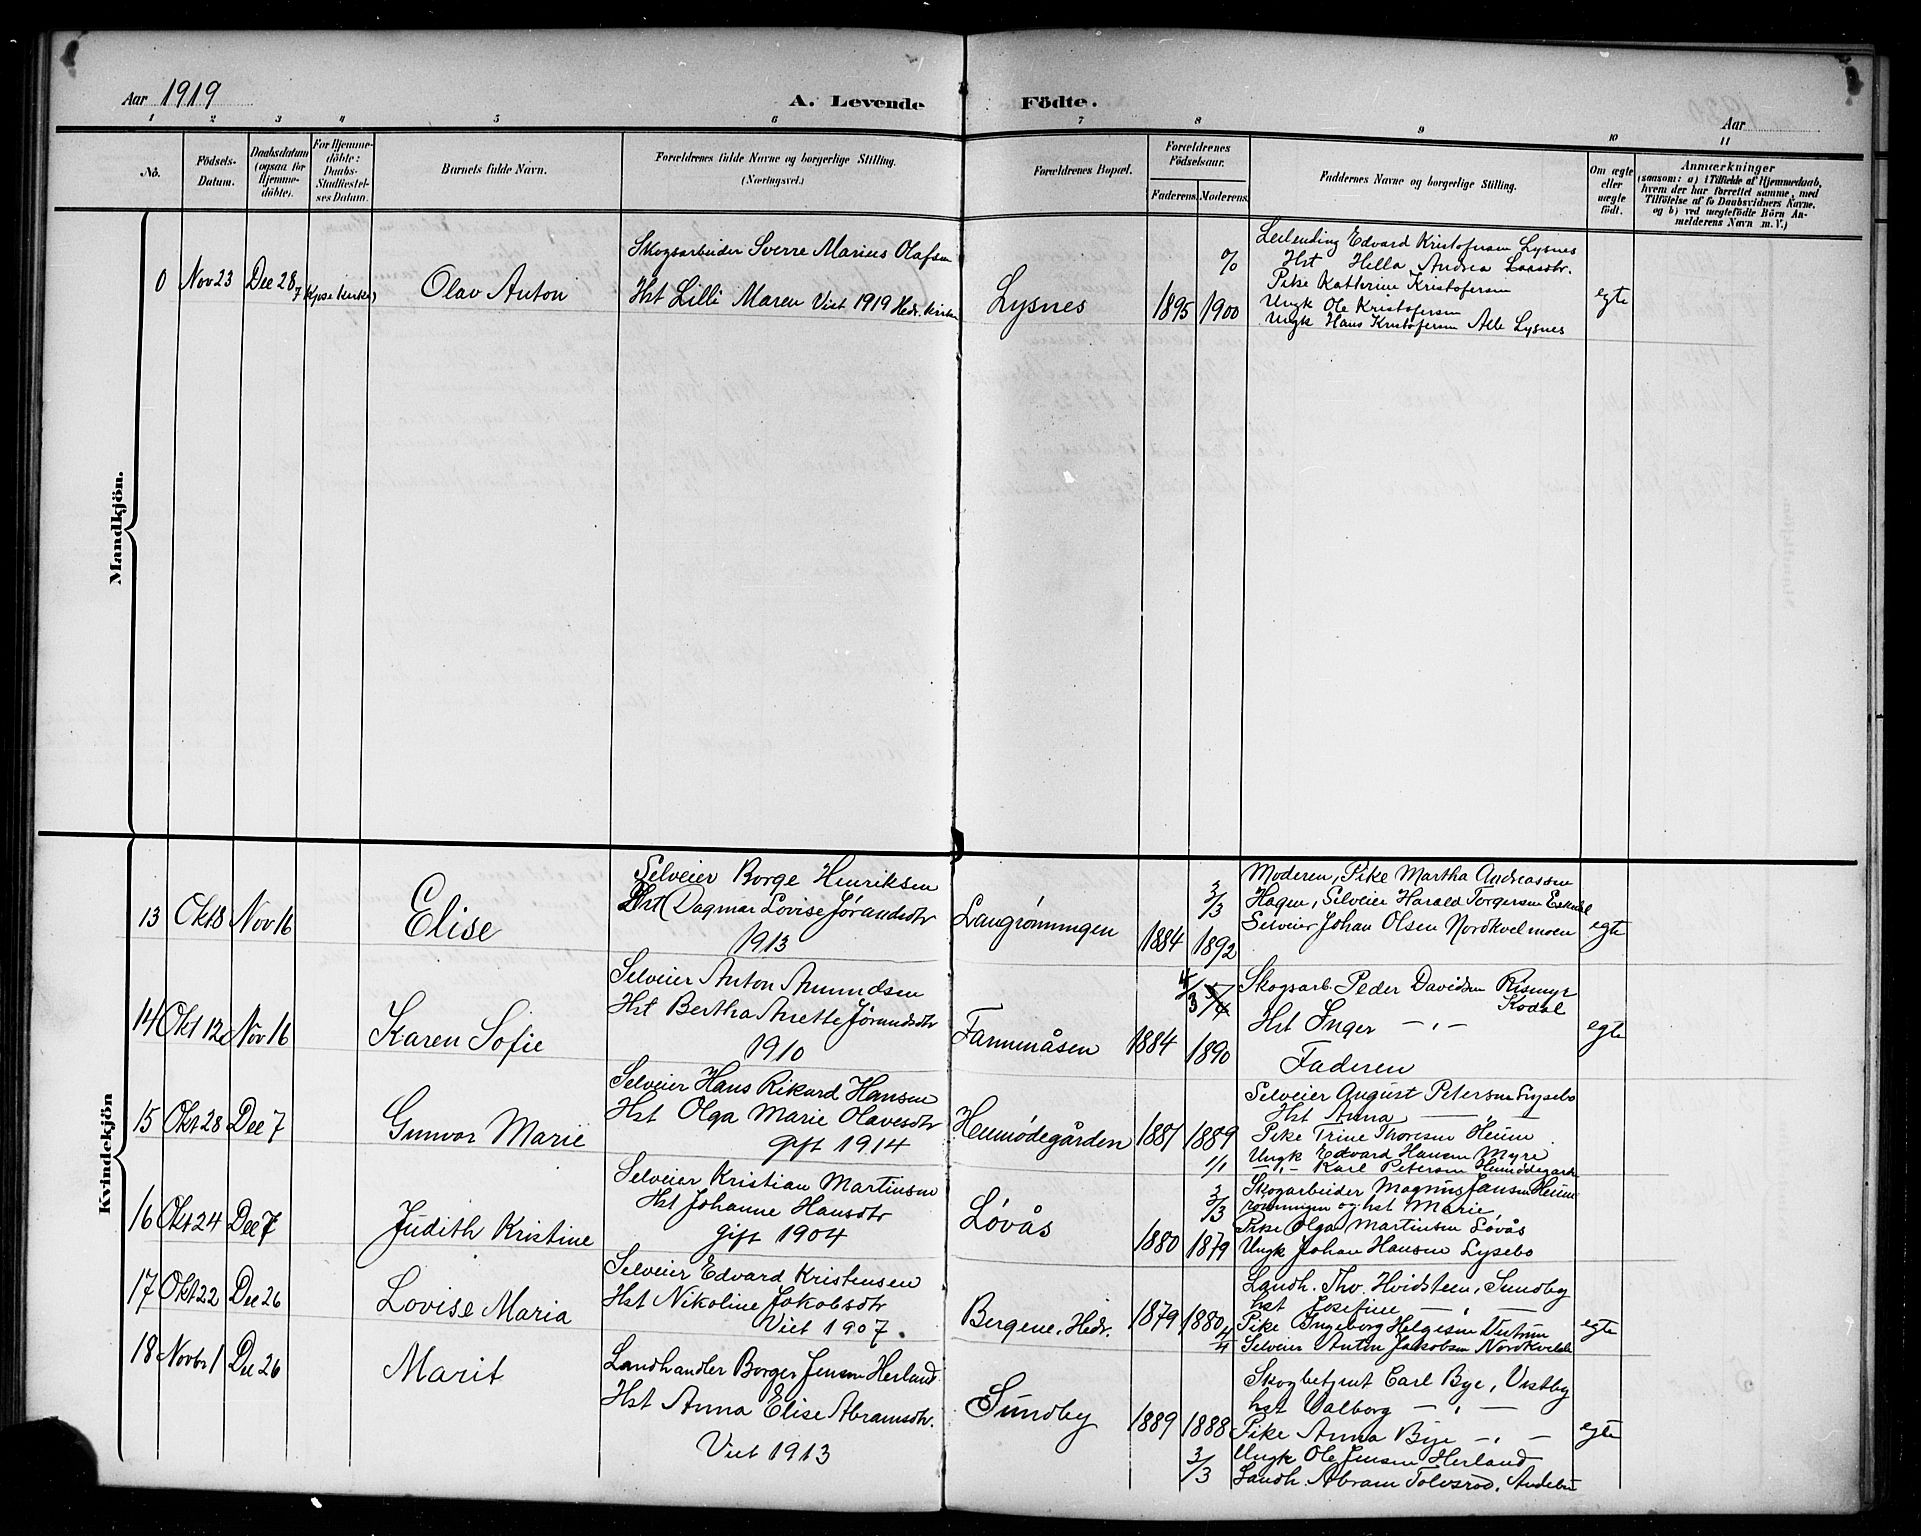 Aar 1919
A. Levende Födte.
Aar
1 2 3 4 5 6 7 8 9 10 11
No.
Födsels-Datum.
Daabsdatum (ogsaa for Hjemme-döbte).
For Hjemme-döbte: Daabs-Stadfæstel-ses Datum.
Barnets fulde Navn.
Forældrenes fulde Navne og borgerlige Stilling.
(Næringsvei.)
Forældrenes Bopæl.
Forældrenes Födselsaar.
Faderens. Moderens.
Faddernes Navne og borgerlige Stilling.
Om ægte eller uægte födt.
Anmærkninger
(saasom: a) i Tilfælde af Hjemmedaab,
hvem der har forrettet samme, med
Tilföielse af to Daabsvidners Navne.
og b) ved uægtefödte Börn An-
melderens Navn m. V.)
Mandkjön.
0 Nov 23 Dec 28 Olav Anton
Skogsarbeider Sverre Marius Olafsen
Hst Lilli Maren Viet 1919 Hedr. kirken
Lysnes 1895 1900 %
Leilending Edvard Kristofersen Lysnes
Hst Hella Andrea
Pike Kathrine Kristofersen
Ungk Ole Kristofersen
Ungk Hans Kristofersen Alle Lysnes
egte
Kvindekjön
13 Okt 8 Nov 16 Elise
Selveier Borge Henriksen
Hst Dagmar Lovise Jörandsdtr
1913
Langrønningen 1884 1892 3/3
Moderen, Pike Martha Andreassen
Hagen, Selveier Harald Torgersen
Selveier Johan Olsen Nordkvelmoen
egte
14 Okt 12 Nov 16 Karen Sofie
Selveier Anton Amundsen
Hst Bertha Anette Jörandsdtr
1910
Fannemåsen 1884 1890 4/3
Skogsarb Peder Davidsen Rismyr
Kodal
Hst Inger — " —
Faderen
egte
15 Okt 28 Dec 7 Gunvor Marie
Selveier Hans Rikard Hansen
Hst Olga Marie Olavesdtr
gift 1914
Heimødegården 1887 1889 1/1
Selveier August Petersen Lysebo
Hst Anna —
Pike Trine Thoresen Heum
Ungk Edvard Hansen Myre
— " — Karl Petersen
16 Okt 24 Dec 7 Judith Kristine
Selveier Kristian Martinsen
Hst Johanne Hansdtr
gift 1904
Løvås 1880 1879 3/3
Skogarbeider Magnus Jansen Heum
rønningen og hst Marie
Pike Olga Martinsen Løvås
Ungk Johan Hansen Lysebo
17 Okt 22 Dec 26 Lovise Maria
Selveier Edvard Kristensen
Hst Nikoline Jakobsdtr
Viet 1907.
Bergene, Hedr. 1879 1880 4/4
Landh. Thv. Hvidsteen, Sundby
hst Josefine — " —
Pike Ingeborg Helgesen
Selveier Anton Jakobsen
egte
18 Novbr 1 Dec 26 Marit
Landhandler Borger Jensen Herland.
Hst Anna Elise Abramsdtr.
Viet 1913
Sundby 1889 1888 3/3
Skogbetjent Carl Bye, Vestby
hst Valborg — " —
Pike Anna Bye — " —
Ungk Ole Jensen Herland
Landh. Abram Tolvsrød, Andebu
egte